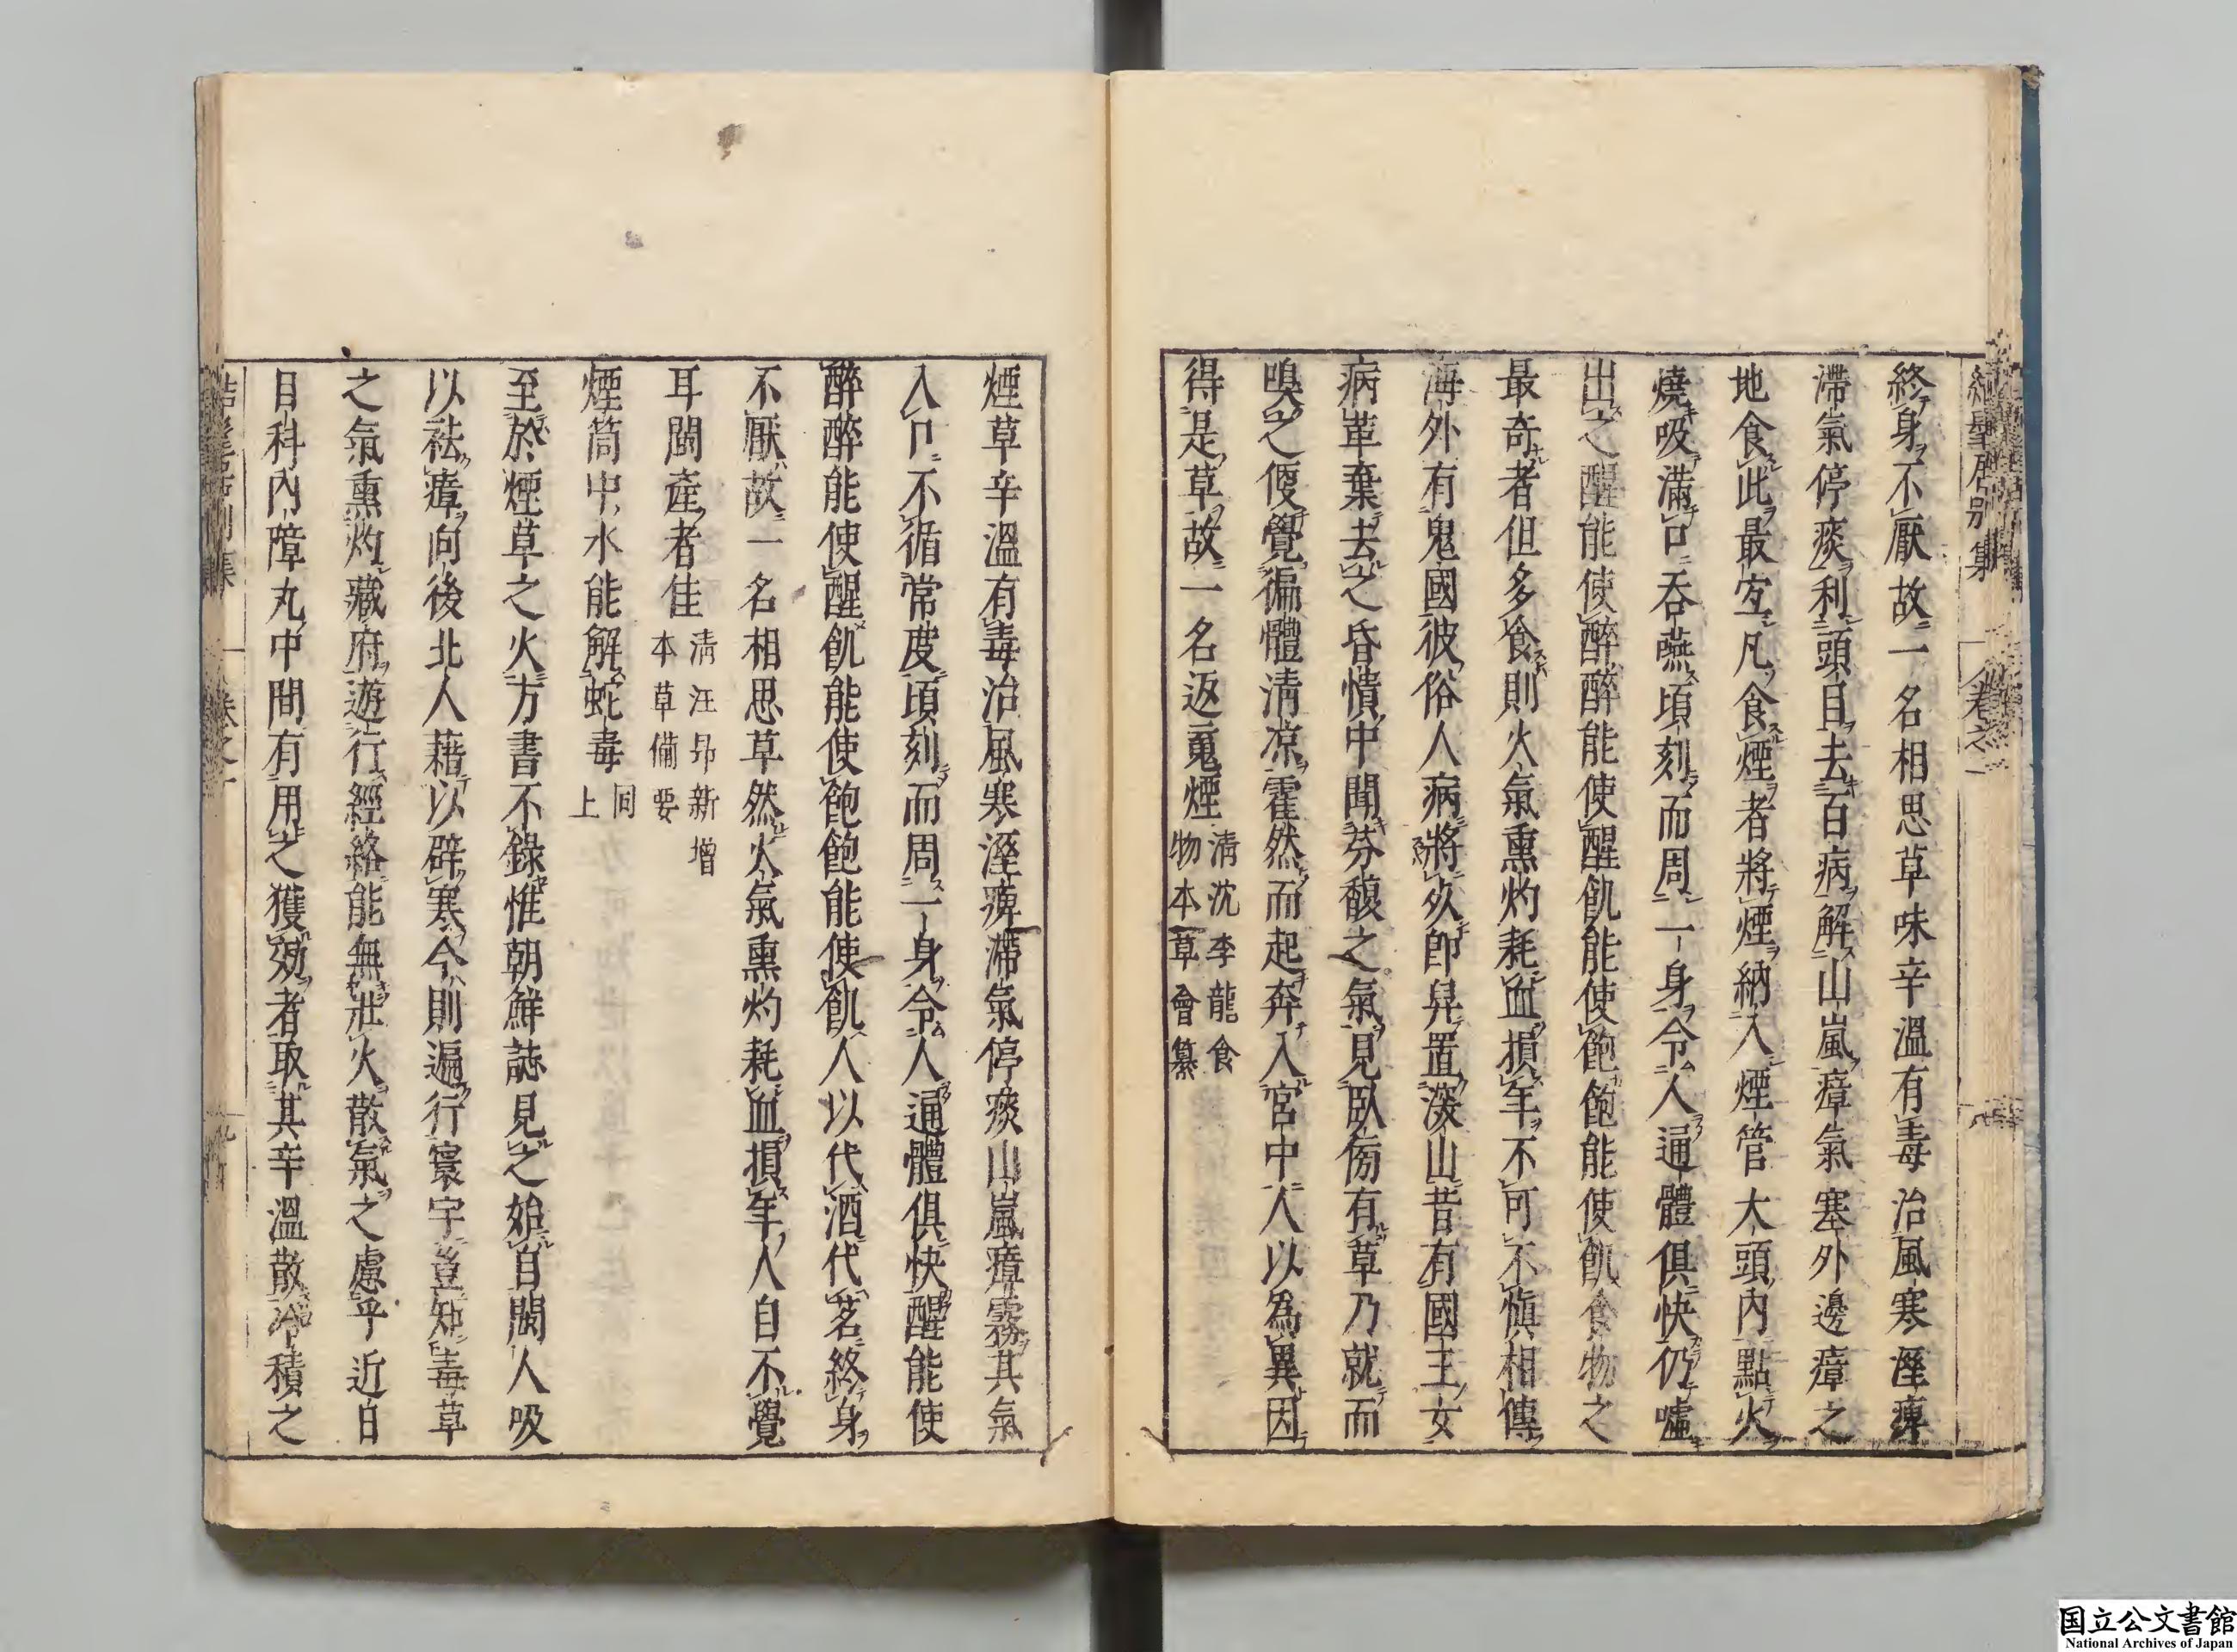 終身不厭故一名相思草味辛溫有毒治風寒溼痺
滯氣停痰利頭目去百病解山嵐瘴氣塞外邊瘴之
地食此最宜凡食煙者將煙納入煙管大頭內點火
燒吸滿口吞嚥頃刻而周一身令人通體俱快仍噓
出之醒能使醉醉能使醒飢能使飽飽能使飢食物之
最奇者但多食則火氣熏灼耗血損年不可不愼相傳
海外有鬼國彼俗人病將死卽舁置深山昔有國王女
病革棄去之昏憒中聞芬馥之氣見臥傍有草乃就而
嗅之便覺徧體清凉霍然而起奔入宮中人以為異因
得是草故一名返䰟煙 清沈李龍食
物本草會纂
煙草辛溫有毒治風寒溼痺滯氣停痰山嵐瘴霧其氣
入口不循常度頃刻而周一身令人通體俱快醒能使
醉醉能使醒飢能使飽飽能使飢人以代酒代茗終身
不厭故一名相思草然火氣熏灼耗血損年人自不覺
耳閩產者佳 清汪昂新增
本草備要
煙筒中水能解蛇毒 同
上
至於煙草之火方書不錄惟朝鮮誌見之始自閩人吸
以祛瘴向後北人藉以辟寒今則遍行寰宇豈知毒草
之氣熏灼藏府遊行經絡能無壯火散氣之慮乎近日
目科內障丸中間有用之獲効者取其辛溫散冷積之
居別集
卷之一
八
卷之一
九
国立公文書館
National Archives of Japan